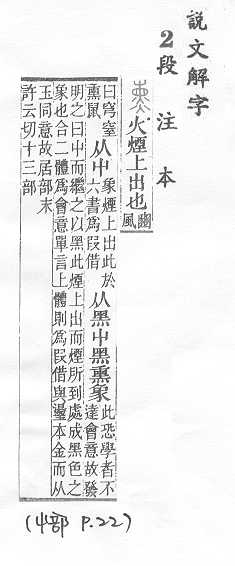 說文解字
2段注本
火煙上出也
豳
風
曰穹窒
熏鼠
从屮
象煙上出此於
六書爲叚借
从黑屮黑熏象
此恐學者不
達會意故發
明之曰屮而繼之以黑此煙上出而煙所到處成黑色之
象也合二體爲會意單言上體則爲叚借與璗本金而从
玉同意故居部末
許云切十三部
(屮部 P.22)